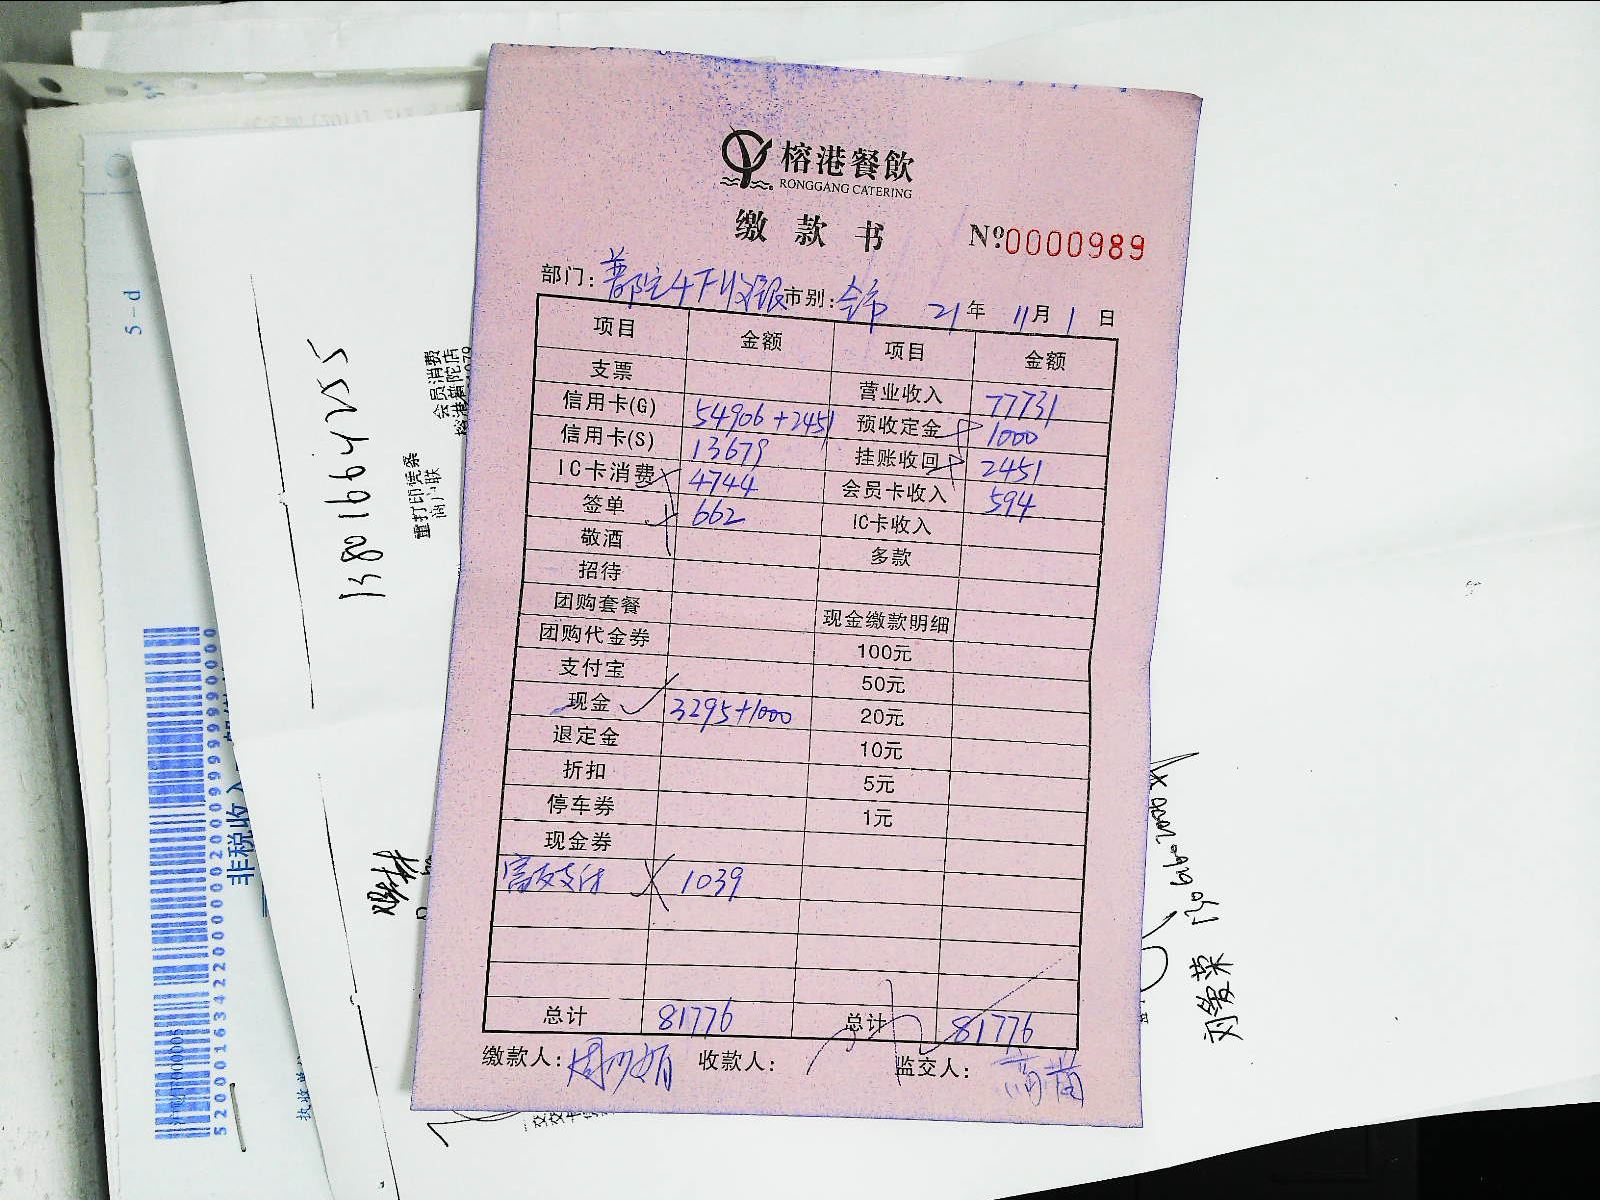 榕港餐飲
RONGGANG CATERING
缴款书
№0000989
部门: 普陀4F收银 市别: 全市 21年 11月 1日
项目 金额 项目 金额
支票 营业收入 77731
信用卡(G) 54906+2451 预收定金 1000
信用卡(S) 13679 挂账收回 2451
IC卡消费 4744 会员卡收入 594
签单 662 IC卡收入
敬酒 多款
招待
团购套餐 现金缴款明细
团购代金券 100元
支付宝 50元
现金 3295+1000 20元
退定金 10元
折扣 5元
停车券 1元
现金券
支付 1039
总计 81776 总计 81776
缴款人: 收款人: 监交人:
5-d
13801664255
会员消费
榕港普陀店
重打印凭条
商户联
非税收入
执收单